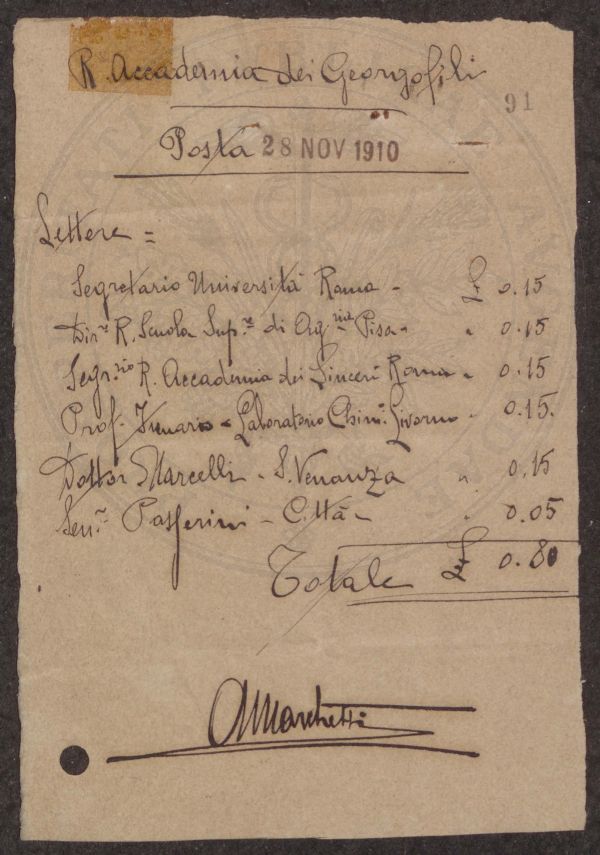 R. Accademia dei Georgofili
91
Posta 28 NOV 1910
Lettere =
Segretario Università Roma - £ 0.15
Dir.e R. Scuola Sup.e di Agria Pisa - " 0.15
Segr.rio R. Accademia dei Lincei Roma " 0.15
Prof. - Laboratorio Chim. Livorno - 0.15.
Dottor Marcelli - S. Venanza " 0.15
Sen.e Passerini - Città - " 0.05
Totale £ 0.80
AMarchetti